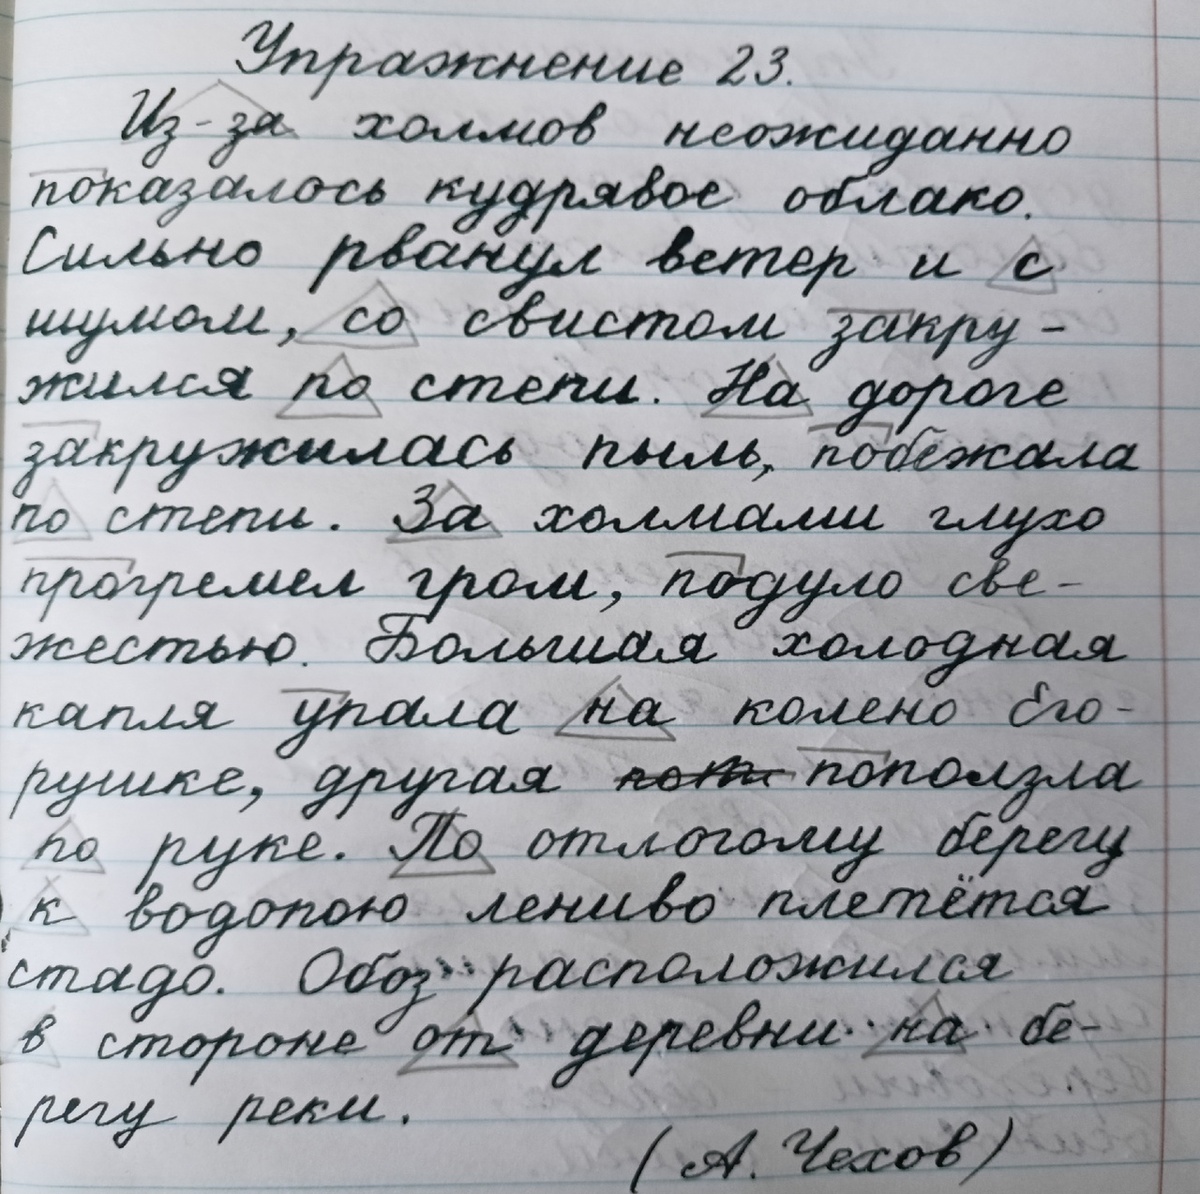 Упражнение 23.
Из-за холмов неожиданно
показалось кудрявое облако.
Сильно рванул ветер и с
шумом, со свистом закру-
жился по степи. На дороге
закружилась пыль, побежала
по степи. За холмами глухо
прогремел гром, подуло све-
жестью. Большая холодная
капля упала на колено Его-
рушке, другая поползла
по руке. По отлогому берегу
к водопою лениво плетётся
стадо. Обоз расположился
в стороне от деревни на бе-
регу реки.
(А. Чехов)